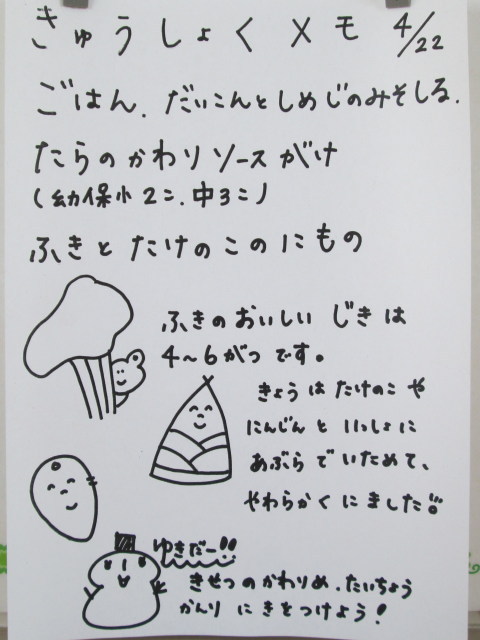 きゅうしょくメモ 4/22
ごはん.だいこんとしめじのみそしる.
たらのかわりソースがけ
(幼保小2コ.中3コ)
ふきとたけのこのにもの
ふきのおいしいじきは
4~6がつです。
きょうはたけのこや
にんじんといっしょに
あぶらでいためて、
やわらかくにました!!
ゆきだー!!
きせつのかわりめ.たいちょう
かんりにきをつけよう!